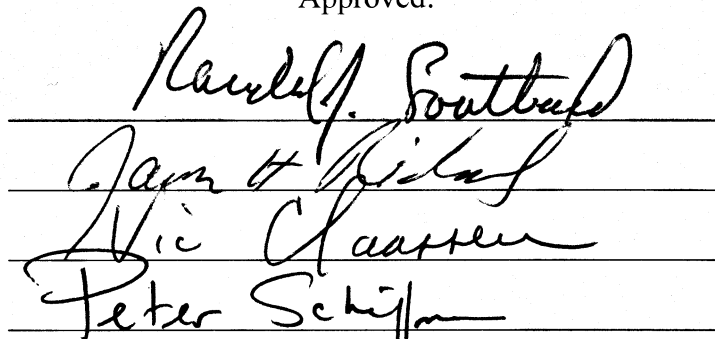 Approved:
Randal J. Southard
James H Richards
Vic Claassen
Peter Schiffman